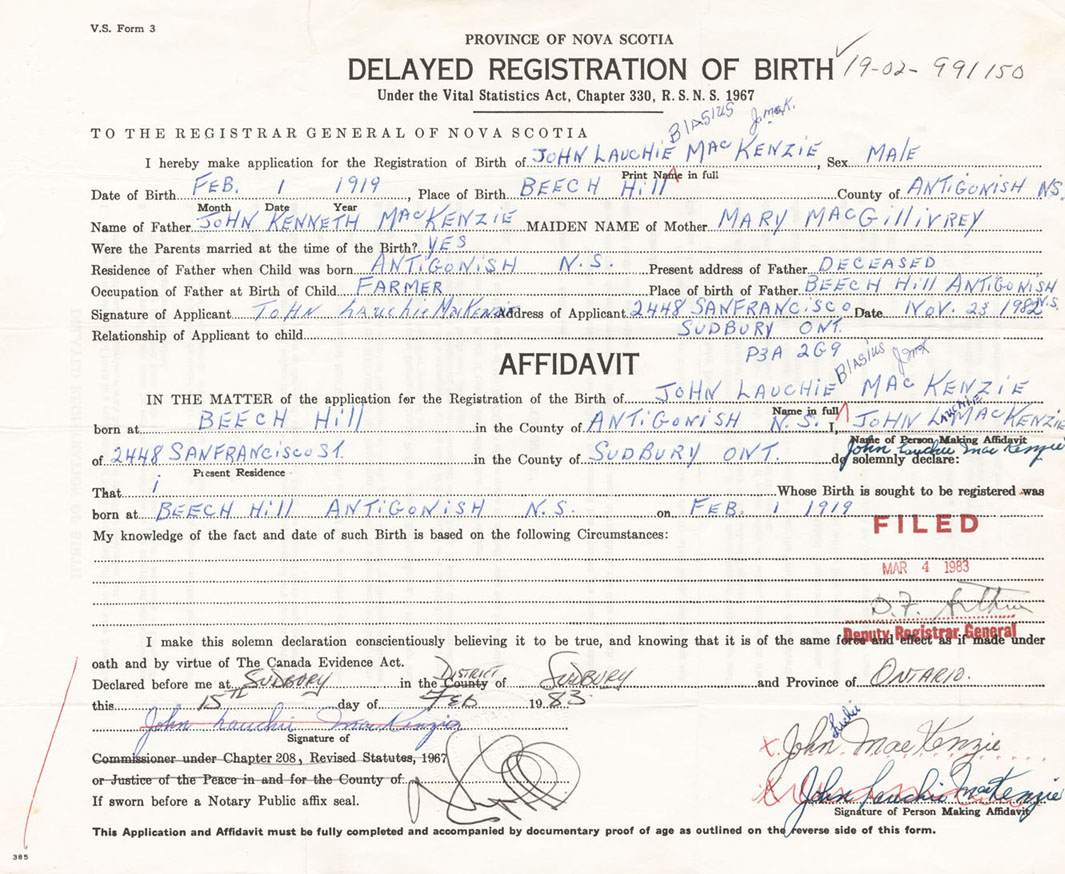 V.S. Form 3
PROVINCE OF NOVA SCOTIA
DELAYED REGISTRATION OF BIRTH 19-02-991150
Under the Vital Statistics Act, Chapter 330, R.S.N.S. 1967
TO THE REGISTRAR GENERAL OF NOVA SCOTIA
BlASIUS J. MacK.
I hereby make application for the Registration of Birth of JOHN LAUCHIE MAC KENZIE, Sex MAlE
Print Name in full
Date of Birth FEB. 1 1919, Place of Birth BEECH Hill County of ANTIGONISH NS.
Month Date Year
Name of Father JOHN KENNETH MACKENZIE MAIDEN NAME of Mother MARY MACGILLIVREY
Were the Parents married at the time of the Birth? YES
Residence of Father when Child was born ANTIGONISH N.S. Present address of Father DECEASED
Occupation of Father at Birth of Child FARMER Place of birth of Father BEECH Hill ANTIGONISH N.S.
Signature of Applicant JOHN Lauchie MacKenzie Address of Applicant 2448 SANFRANCISCO Date NOV. 23 1982
Relationship of Applicant to child SUDBURY ONT.
P3A 2G9
AFFIDAVIT
BlASIUS
IN THE MATTER of the application for the Registration of the Birth of JOHN LAUCHIE MAC KENZIE
Name in full
born at BEECH Hill in the County of ANTIGONISH N.S. I, JOHN L. LAUCHIE MACKENZIE
Name of Person Making Affidavit
of 2448 SANFRANCISCO ST. in the County of SUDBURY ONT. John Lauchie Mac Kenzie do solemnly declare:
Present Residence
That i Whose Birth is sought to be registered was
born at BEECH Hill ANTIGONISH N.S. on FEB. 1 1919
FILED
My knowledge of the fact and date of such Birth is based on the following Circumstances:
MAR 4 1983
D.F. Arthur
Deputy Registrar General
I make this solemn declaration conscientiously believing it to be true, and knowing that it is of the same force and effect as if made under
oath and by virtue of The Canada Evidence Act.
DISTRICT
Declared before me at SUDBURY in the County of SUDBURY and Province of ONTARIO.
this 15TH day of FEB 1983.
John Lauchie MacKenzie
Signature of
Lauchie
Commissioner under Chapter 208, Revised Statutes, 1967 x John MacKenzie
or Justice of the Peace in and for the County of
x John Lauchie MacKenzie
If sworn before a Notary Public affix seal.
Signature of Person Making Affidavit
This Application and Affidavit must be fully completed and accompanied by documentary proof of age as outlined on the reverse side of this form.
385